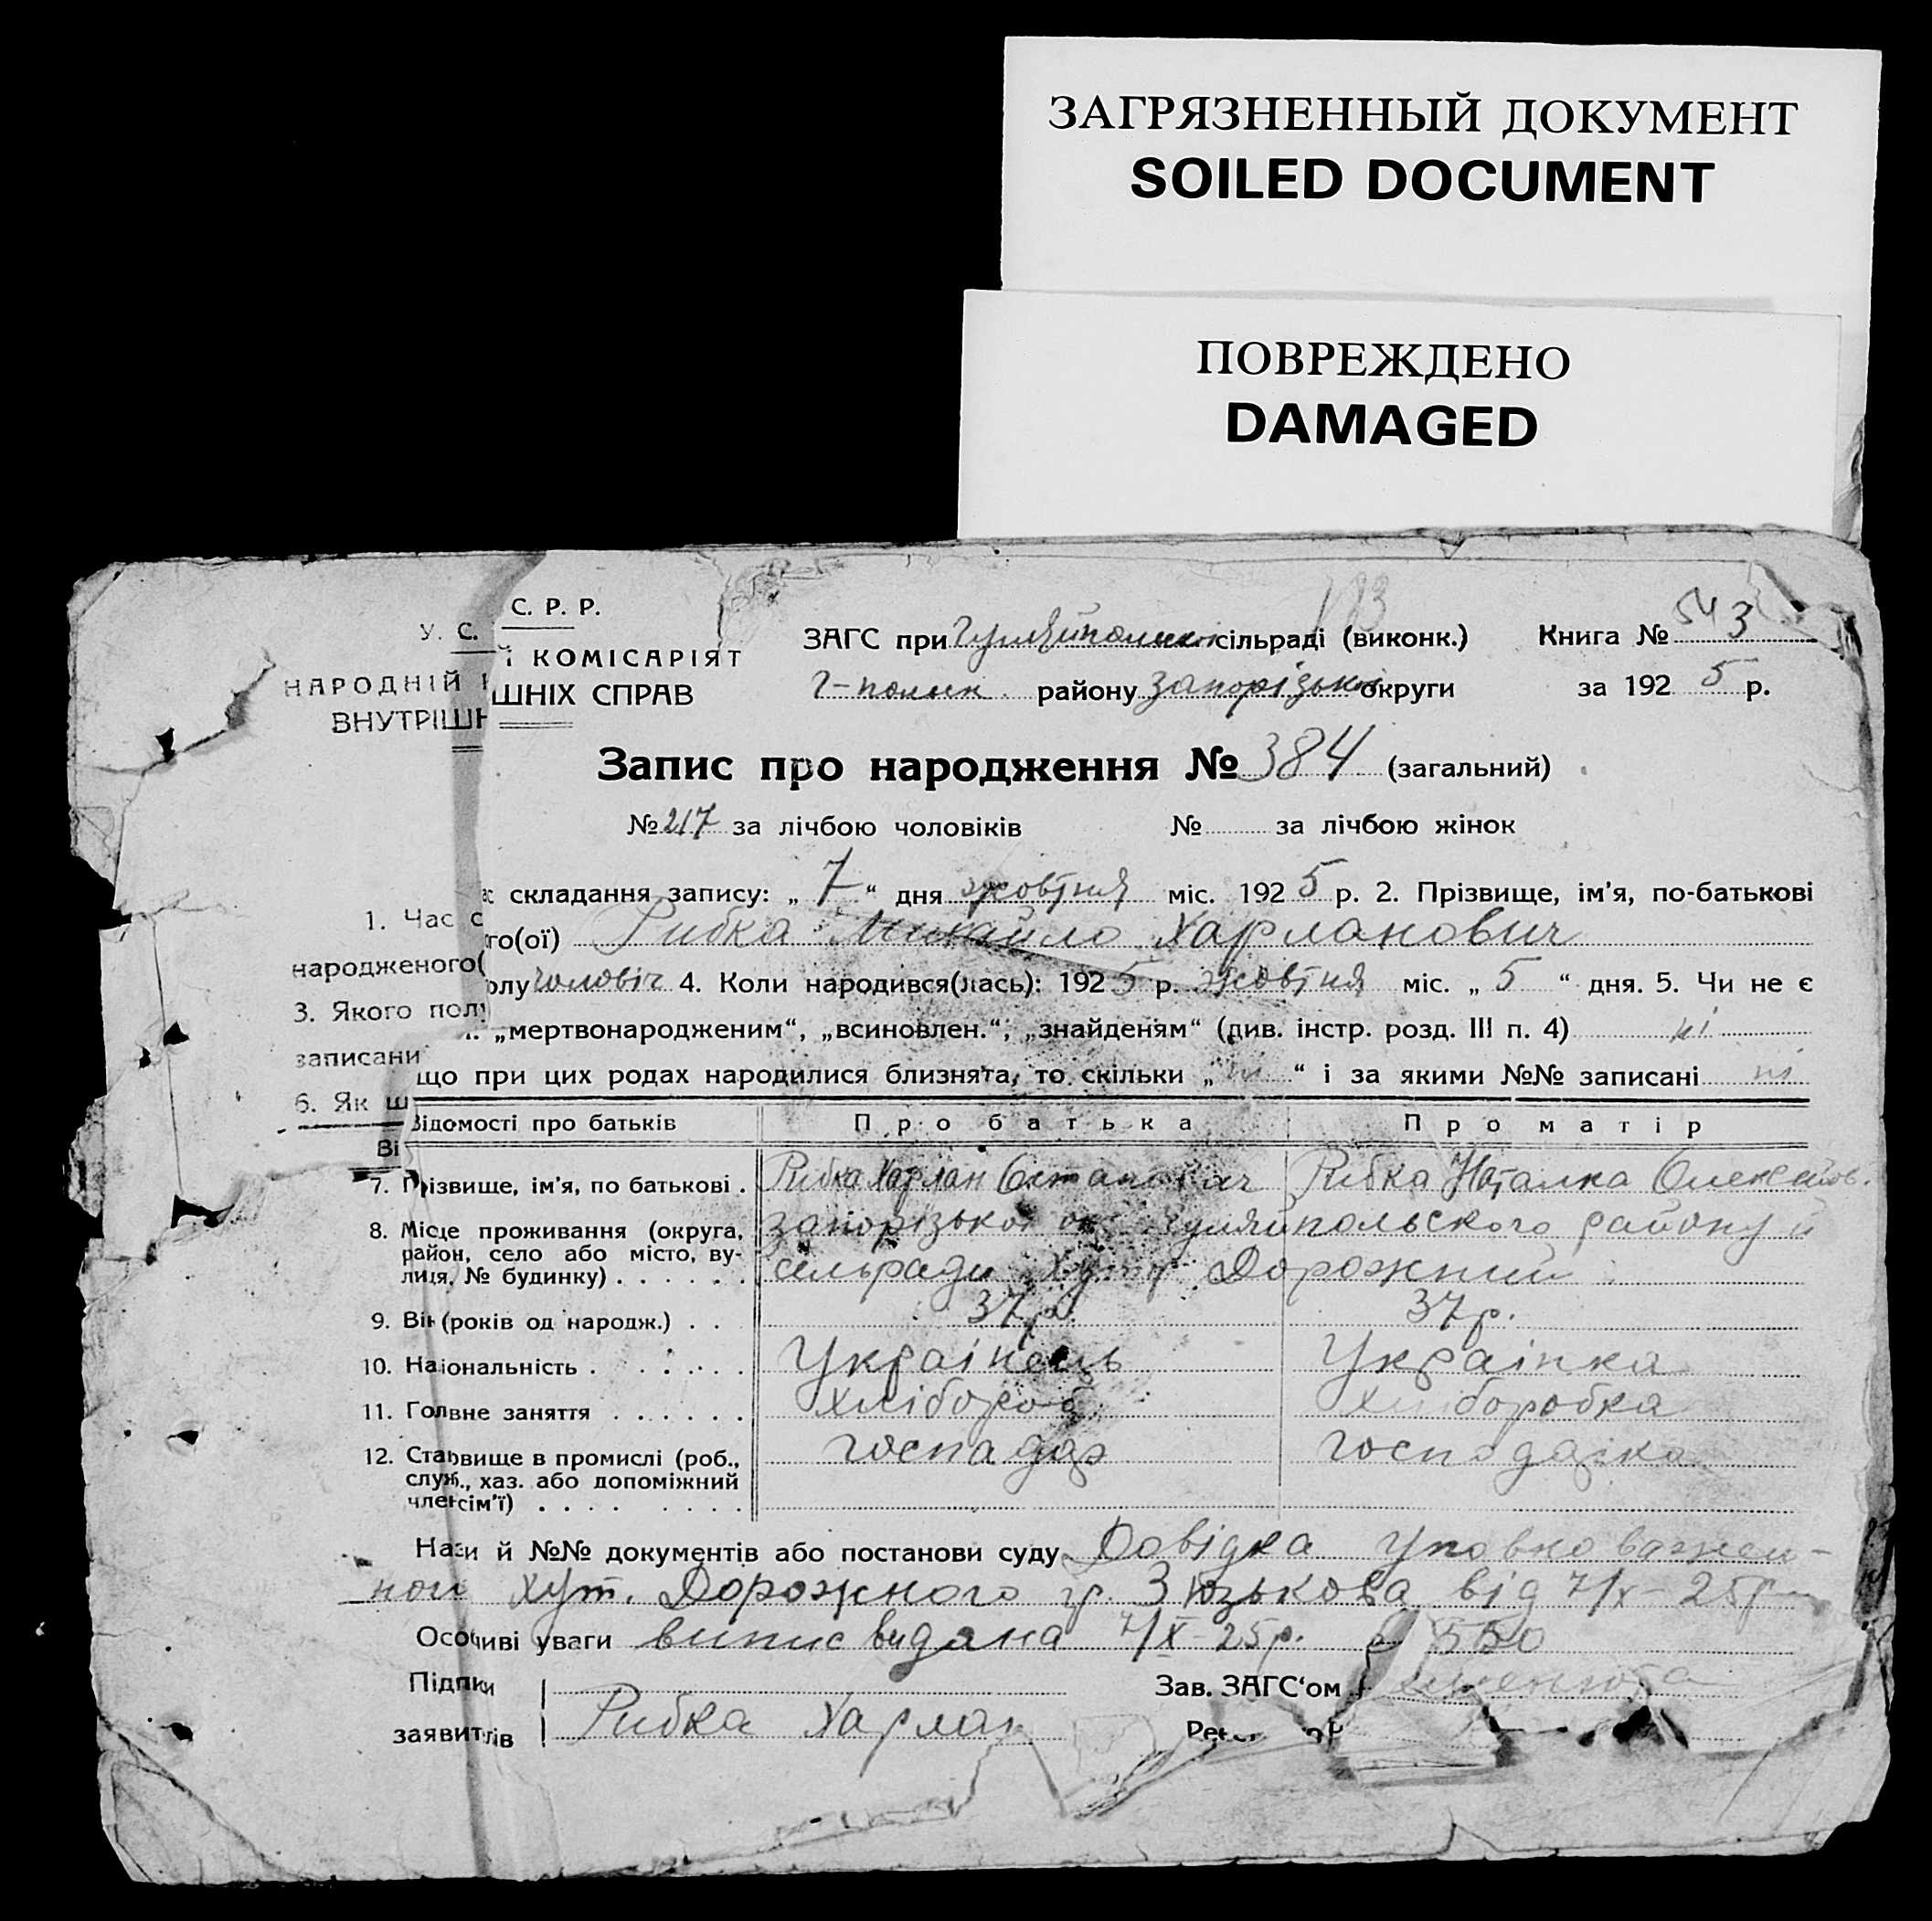 ЗАГРЯЗНЕННЫЙ ДОКУМЕНТ
SOILED DOCUMENT
ПОВРЕЖДЕНО
DAMAGED
У. С. С. Р. Р.
НАРОДНІЙ Й КОМІСАРІЯТ
ВНУТРІШН ШНІХ СПРАВ
ЗАГС при сільраді (виконк.)
Книга № 543
Г-польск району Запорізької округи
за 192 5 р.
Запис про народження № 384 (загальний)
№ 217 за лічбою чоловіків № за лічбою жінок
1. Час с складання запису: „ 7 “ дня жовтня міс. 192 5 р. 2. Прізвище, ім’я, по-батькові
народженого( го(ої) Рибка Михайло Харланович
3. Якого полу чоловіч 4. Коли народився(лась): 192 5 р. жовтня міс. „ 5 “ дня. 5. Чи не є
записани „мертвонародженим“, „всиновлен.“, „знайденям“ (див. інстр. розд. III п. 4) ні
6. Як що при цих родах народилися близнята, то скільки „ ні “ і за якими №№ записані ні
Відомості про батьків Про батька Про матір
7. Прізвище, ім’я, по батькові . Рибка Харлан Рибка Наталка
8. Місце проживання (округа, район, село або місто, вулиця, № будинку) . . . . . . Запорізької ок Гуляйпольского району й
сельради Хутір Дорожний
9. Вік (років од народж.) . . 37 р. 37 р.
10. Національність . . . . . . Українець Українка
11. Головне заняття . . . . . . Хлібороб Хліборобка
12. Становище в промислі (роб., служ., хаз. або допоміжний член сім’ї) . . . . . . . . господар господарка
Назви й №№ документів або постанови суду Довідка Уповноважен-
ной хут. Дорожного гр. Зюзькова від 7/X-25р
Особливі уваги випис видана 7/X-25р. 550
Підписи
заявителів Рибка Харлан
Зав. ЗАГС‘ом